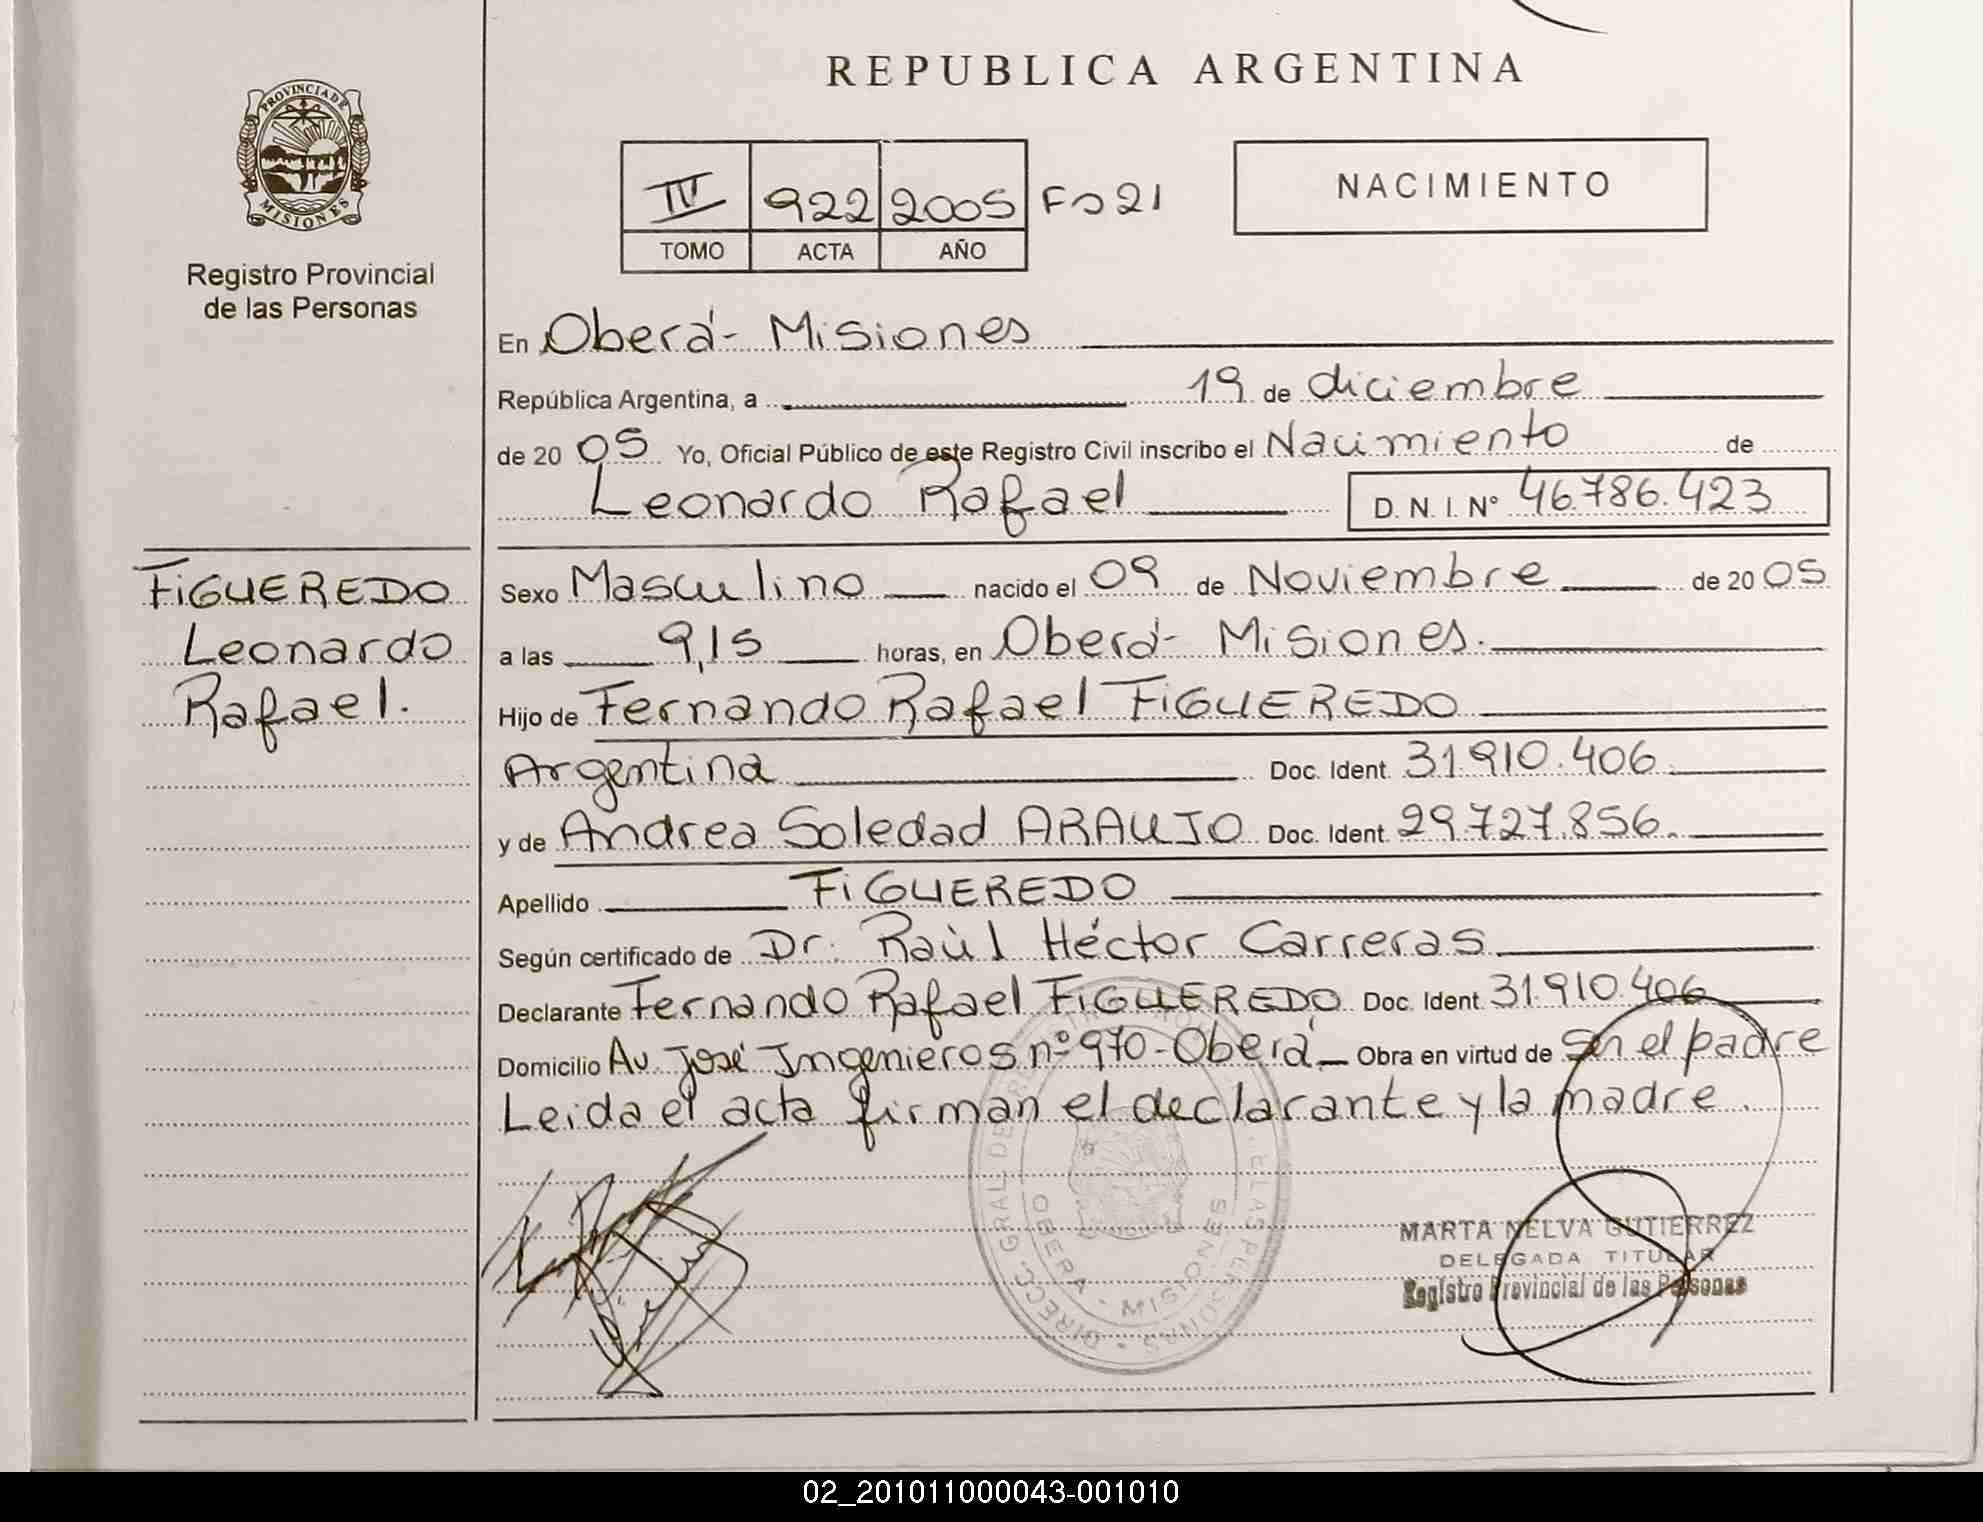 REPUBLICA ARGENTINA
PROVINCIA DE
MISIONES
Registro Provincial
de las Personas
IV 922 2005 Fo 21
TOMO ACTA AÑO
NACIMIENTO
En Oberá - Misiones
República Argentina, a 19 de diciembre
de 20 05 Yo, Oficial Público de este Registro Civil inscribo el Nacimiento de
Leonardo Rafael D. N. I. Nº 46.786.423
FiGUEREDO
Leonardo
Rafael.
Sexo Masculino nacido el 09 de Noviembre de 20 05
a las 9,15 horas, en Oberá - Misiones.
Hijo de Fernando Rafael FiGUEREDO
Argentina Doc. Ident. 31.910.406
y de Andrea Soledad ARAUJO Doc. Ident. 29.727.856.
Apellido FiGUEREDO
Según certificado de Dr. Raúl Héctor Carreras
Declarante Fernando Rafael FiGUEREDO Doc. Ident. 31.910.406
Domicilio Av. José Ingenieros nº 970 - Oberá Obra en virtud de ser el padre
Leida el acta firman el declarante y la madre.
DIRECC. GRAL. DE REGISTRO DE LAS PERSONAS
OBERA - MISIONES
MARTA NELVA GUTIERREZ
DELEGADA TITULAR
Registro Provincial de las Personas
02_201011000043-001010